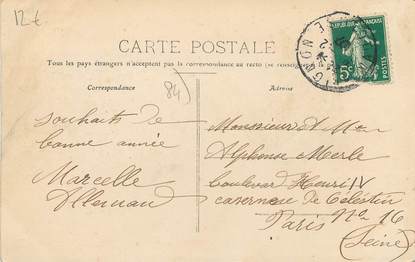 12€
CARTE POSTALE
Tous les pays étrangers n'acceptent pas la correspondance au recto (se renseigner
Correspondance
Adresse
84)
REPUBLIQUE FRANÇAISE
5c
POSTES
souhaits de
bonne année
Marcelle
Monsieur et Mme
Alphonse Merle
boulevar Henri IV
caserne de Célestin
Paris No 16
(Seine)